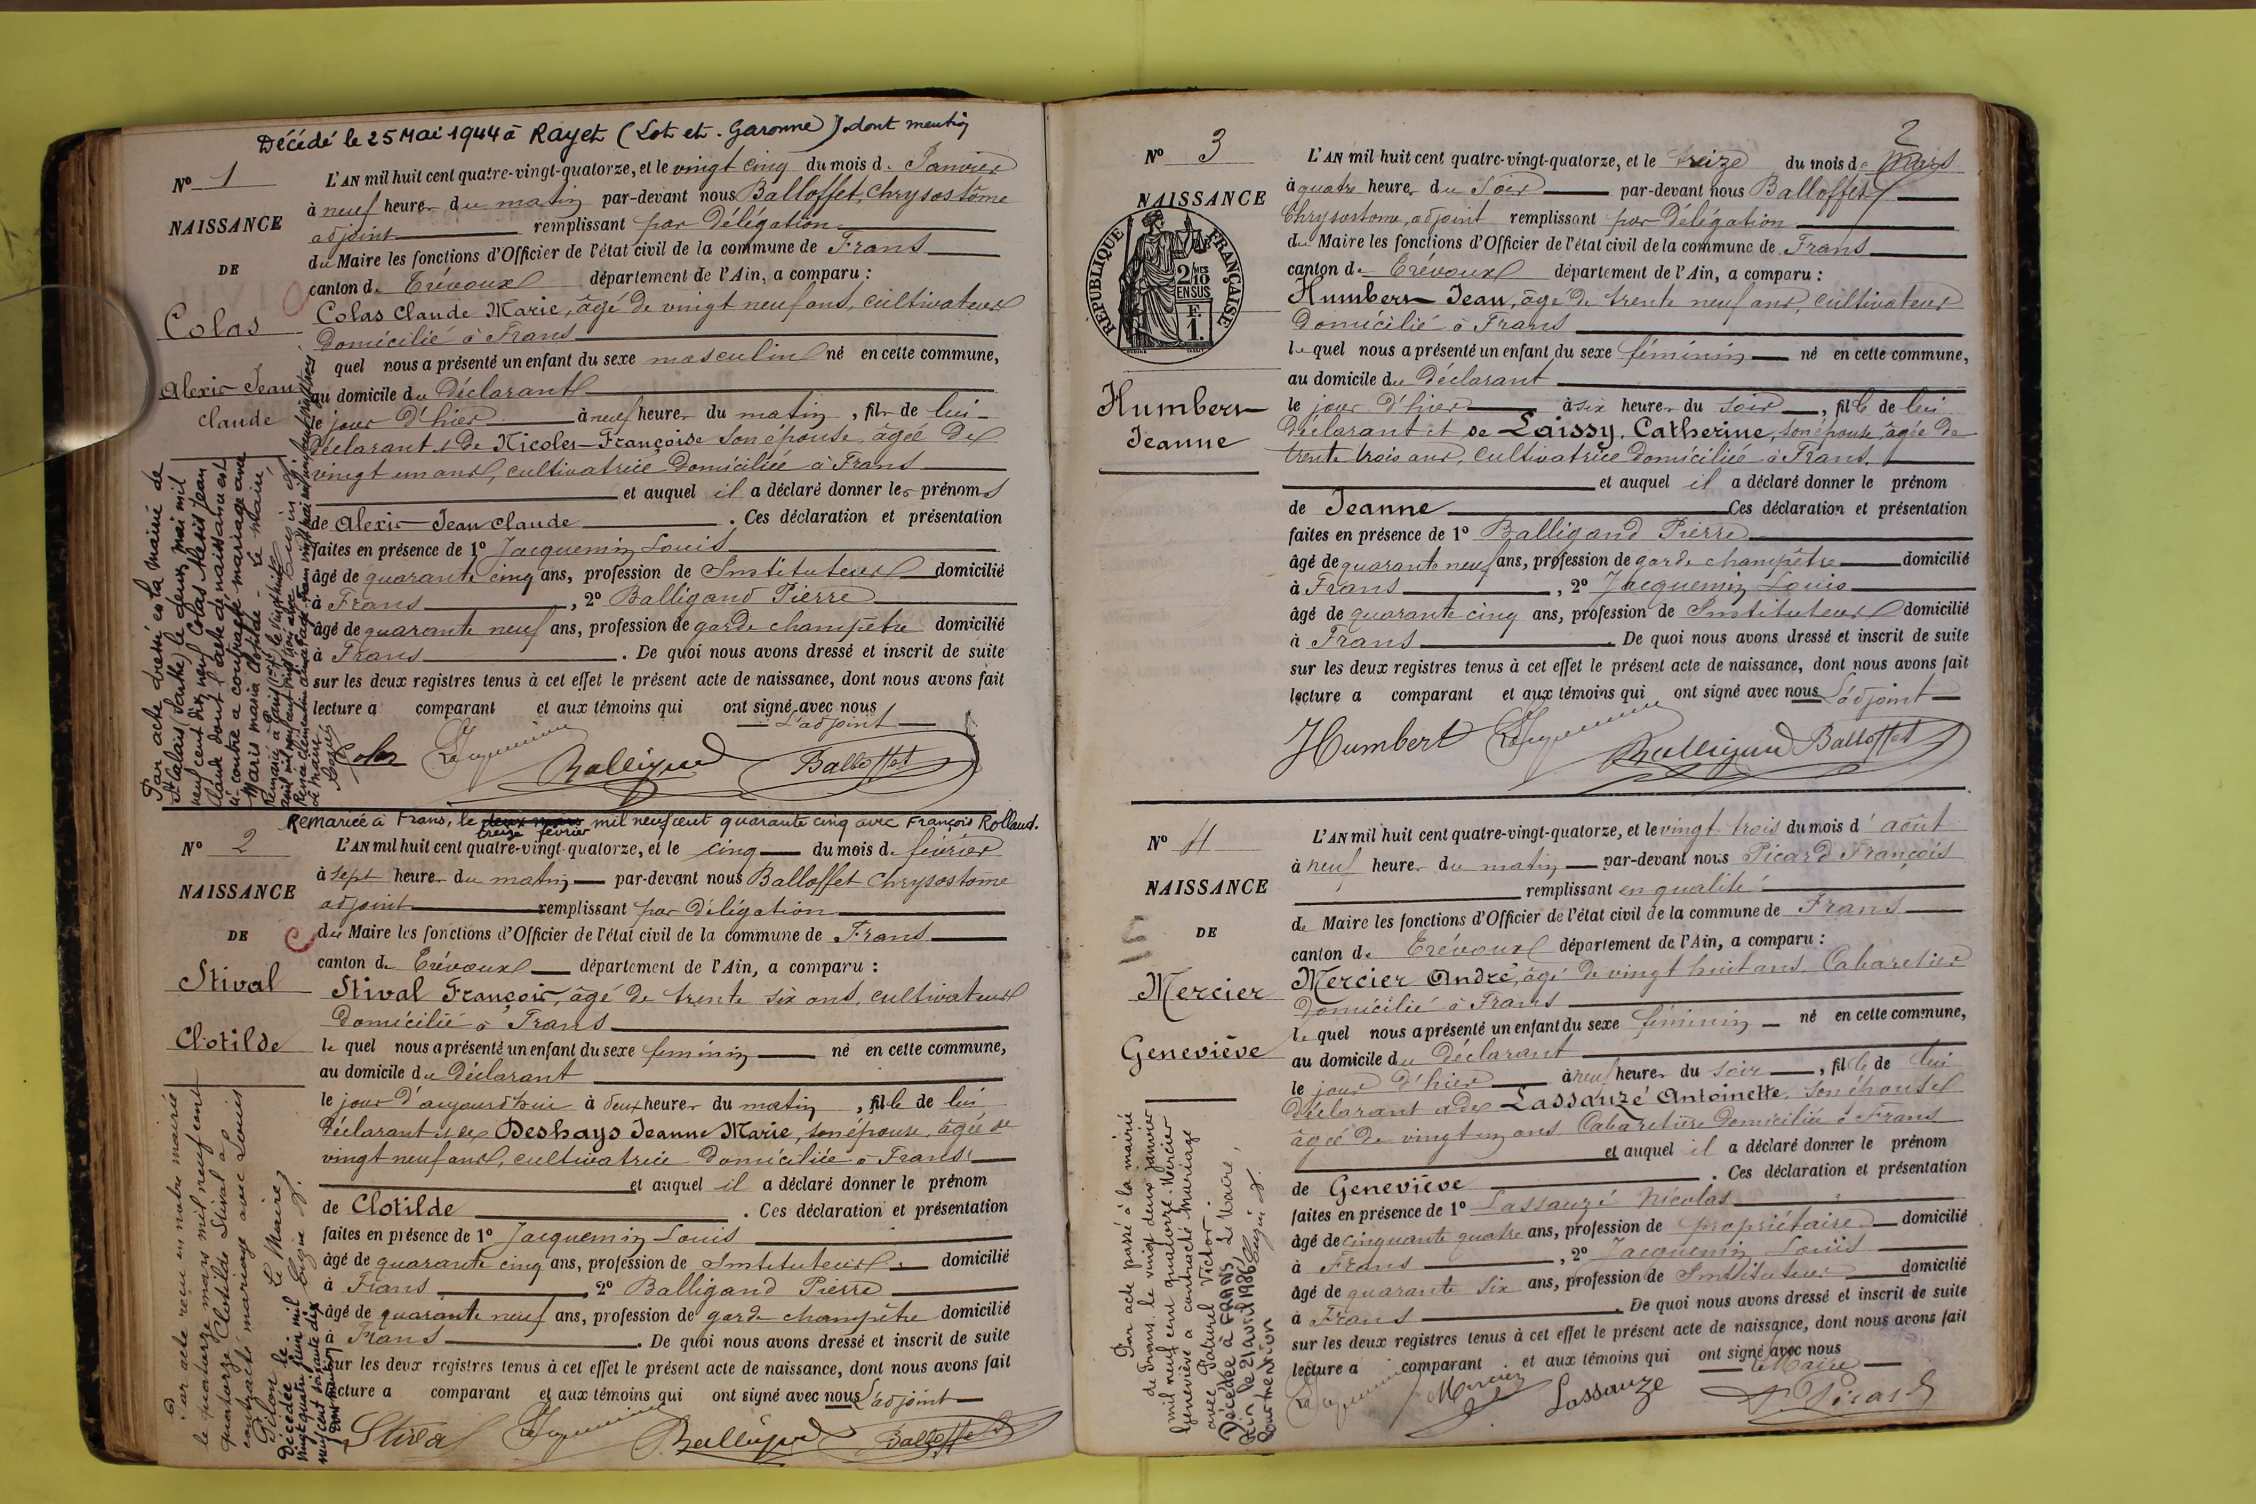 Décédé le 25 Mai 1944 à Rayet (Lot et-Garonne). dont mention
No 1
NAISSANCE
DE
Colas
Alexis Jean
Claude
L'AN mil huit cent quatre-vingt-quatorze, et le vingt cinq du mois de Janvier
à neuf heures du matin par-devant nous Balloffet, Chrysostôme
adjoint remplissant par Délégation
du Maire les fonctions d'Officier de l'état civil de la commune de Frans
canton de Trévoux département de l'Ain, a comparu :
Colas Claude Marie, âgé de vingt neuf ans, cultivateur
Domicilié à Frans
quel nous a présenté un enfant du sexe masculin né en cette commune,
au domicile du Déclarant
le jour d'hier à neuf heures du matin, fils de lui
Déclarant et de Nicoles Françoise son épouse, âgée de
vingt un ans, cultivatrice Domiciliée à Frans
et auquel il a déclaré donner les prénoms
de Alexis Jean Claude. Ces déclaration et présentation
faites en présence de 1º Jacquemin Louis
âgé de quarante cinq ans, profession de Instituteur domicilié
à Frans, 2º Balligand Pierre
âgé de quarante neuf ans, profession de garde champêtre domicilié
à Frans. De quoi nous avons dressé et inscrit de suite
sur les deux registres tenus à cet effet le présent acte de naissance, dont nous avons fait
lecture a comparant et aux témoins qui ont signé avec nous
L'adjoint
Colas Jacquemin Balligand Balloffet
Par acte dressé en la mairie de
St Calais (Sarthe) le deux mai mil
neuf cent dix neuf Colas Alexis Jean
Claude dont l'acte de naissance est
ci-contre a contracté mariage avec
Maria Clotilde - Le Maire,
Remariée à Frans, le deux mars mil neuf cent quarante cinq avec François Rolland.
treize février
No 2
NAISSANCE
DE
Stival
Clotilde
L'AN mil huit cent quatre-vingt-quatorze, et le cinq du mois de février
à sept heures du matin par-devant nous Balloffet Chrysostôme
adjoint remplissant par Délégation
du Maire les fonctions d'Officier de l'état civil de la commune de Frans
canton de Trévoux département de l'Ain, a comparu :
Stival François, âgé de trente six ans, cultivateur
Domicilié à Frans
le quel nous a présenté un enfant du sexe féminin né en cette commune,
au domicile du Déclarant
le jour d'aujourd'hui à deux heures du matin, fille de lui
Déclarant et de Deshays Jeanne Marie, son épouse, âgée de
vingt neuf ans, cultivatrice Domiciliée à Frans,
et auquel il a déclaré donner le prénom
de Clotilde. Ces déclaration et présentation
faites en présence de 1º Jacquemin Louis
âgé de quarante cinq ans, profession de Instituteur domicilié
à Frans 2º Balligand Pierre
âgé de quarante neuf ans, profession de garde champêtre domicilié
à Frans. De quoi nous avons dressé et inscrit de suite
sur les deux registres tenus à cet effet le présent acte de naissance, dont nous avons fait
lecture a comparant et aux témoins qui ont signé avec nous L'adjoint
Stival Jacquemin Balligand Balloffet
Par acte reçu en notre mairie
le quatorze mars mil neuf cent
quatorze Clotilde Stival a
contracté mariage avec Louis
Gilon. Le Maire,
Décédée le
vingt quatre juin mil
neuf cent soixante dix
dont mention
2
No 3
NAISSANCE
RÉPUBLIQUE FRANÇAISE
2/10 MES
EN SUS
F.
1.
Humbert
Jeanne
L'AN mil huit cent quatre-vingt-quatorze, et le treize du mois de Mars
à quatre heures du Soir par-devant nous Balloffet
Chrysostome, adjoint remplissant par Délégation
du Maire les fonctions d'Officier de l'état civil de la commune de Frans
canton de Trévoux département de l'Ain, a comparu :
Humbert Jean, âgé de trente neuf ans, cultivateur
Domicilié à Frans
le quel nous a présenté un enfant du sexe féminin né en cette commune,
au domicile du Déclarant
le jour d'hier à six heures du soir, fille de lui
Déclarant et de Laissy, Catherine, son épouse, âgée de
trente trois ans, cultivatrice Domiciliée à Frans.
et auquel il a déclaré donner le prénom
de Jeanne Ces déclaration et présentation
faites en présence de 1º Balligand Pierre
âgé de quarante neuf ans, profession de garde champêtre domicilié
à Frans, 2º Jacquemin Louis
âgé de quarante cinq ans, profession de Instituteur domicilié
à Frans. De quoi nous avons dressé et inscrit de suite
sur les deux registres tenus à cet effet le présent acte de naissance, dont nous avons fait
lecture a comparant et aux témoins qui ont signé avec nous L'adjoint
Humbert Jacquemin Balligand Balloffet
No 4
NAISSANCE
DE
Mercier
Geneviève
L'AN mil huit cent quatre-vingt-quatorze, et le vingt trois du mois d'août
à neuf heures du matin par-devant nous Picard François
remplissant en qualité
de Maire les fonctions d'Officier de l'état civil de la commune de Frans
canton de Trévoux département de l'Ain, a comparu :
Mercier André, âgé de vingt huit ans, Cabaretier
Domicilié à Frans
le quel nous a présenté un enfant du sexe féminin né en cette commune,
au domicile du Déclarant
le jour d'hier à neuf heures du soir, fille de lui
Déclarant et de Lassauzé Antoinette, son épouse
âgée de vingt un ans Cabaretière Domiciliée à Frans
et auquel il a déclaré donner le prénom
de Geneviève. Ces déclaration et présentation
faites en présence de 1º Lassauzé Nicolas
âgé de cinquante quatre ans, profession de propriétaire domicilié
à Frans, 2º Jacquemin Louis
âgé de quarante six ans, profession de Instituteur domicilié
à Frans. De quoi nous avons dressé et inscrit de suite
sur les deux registres tenus à cet effet le présent acte de naissance, dont nous avons fait
lecture a comparant et aux témoins qui ont signé avec nous
le Maire
Jacquemin Mercier Lassauze F. Picard
Par acte passé à la mairie
de Frans, le vingt deux janvier
mil neuf cent quatorze, Mercier
Geneviève a contracté mariage
avec Paturel Victor.
Le Maire,
Décédée à FRANS
Ain le 21 avril 1986
Pour mention